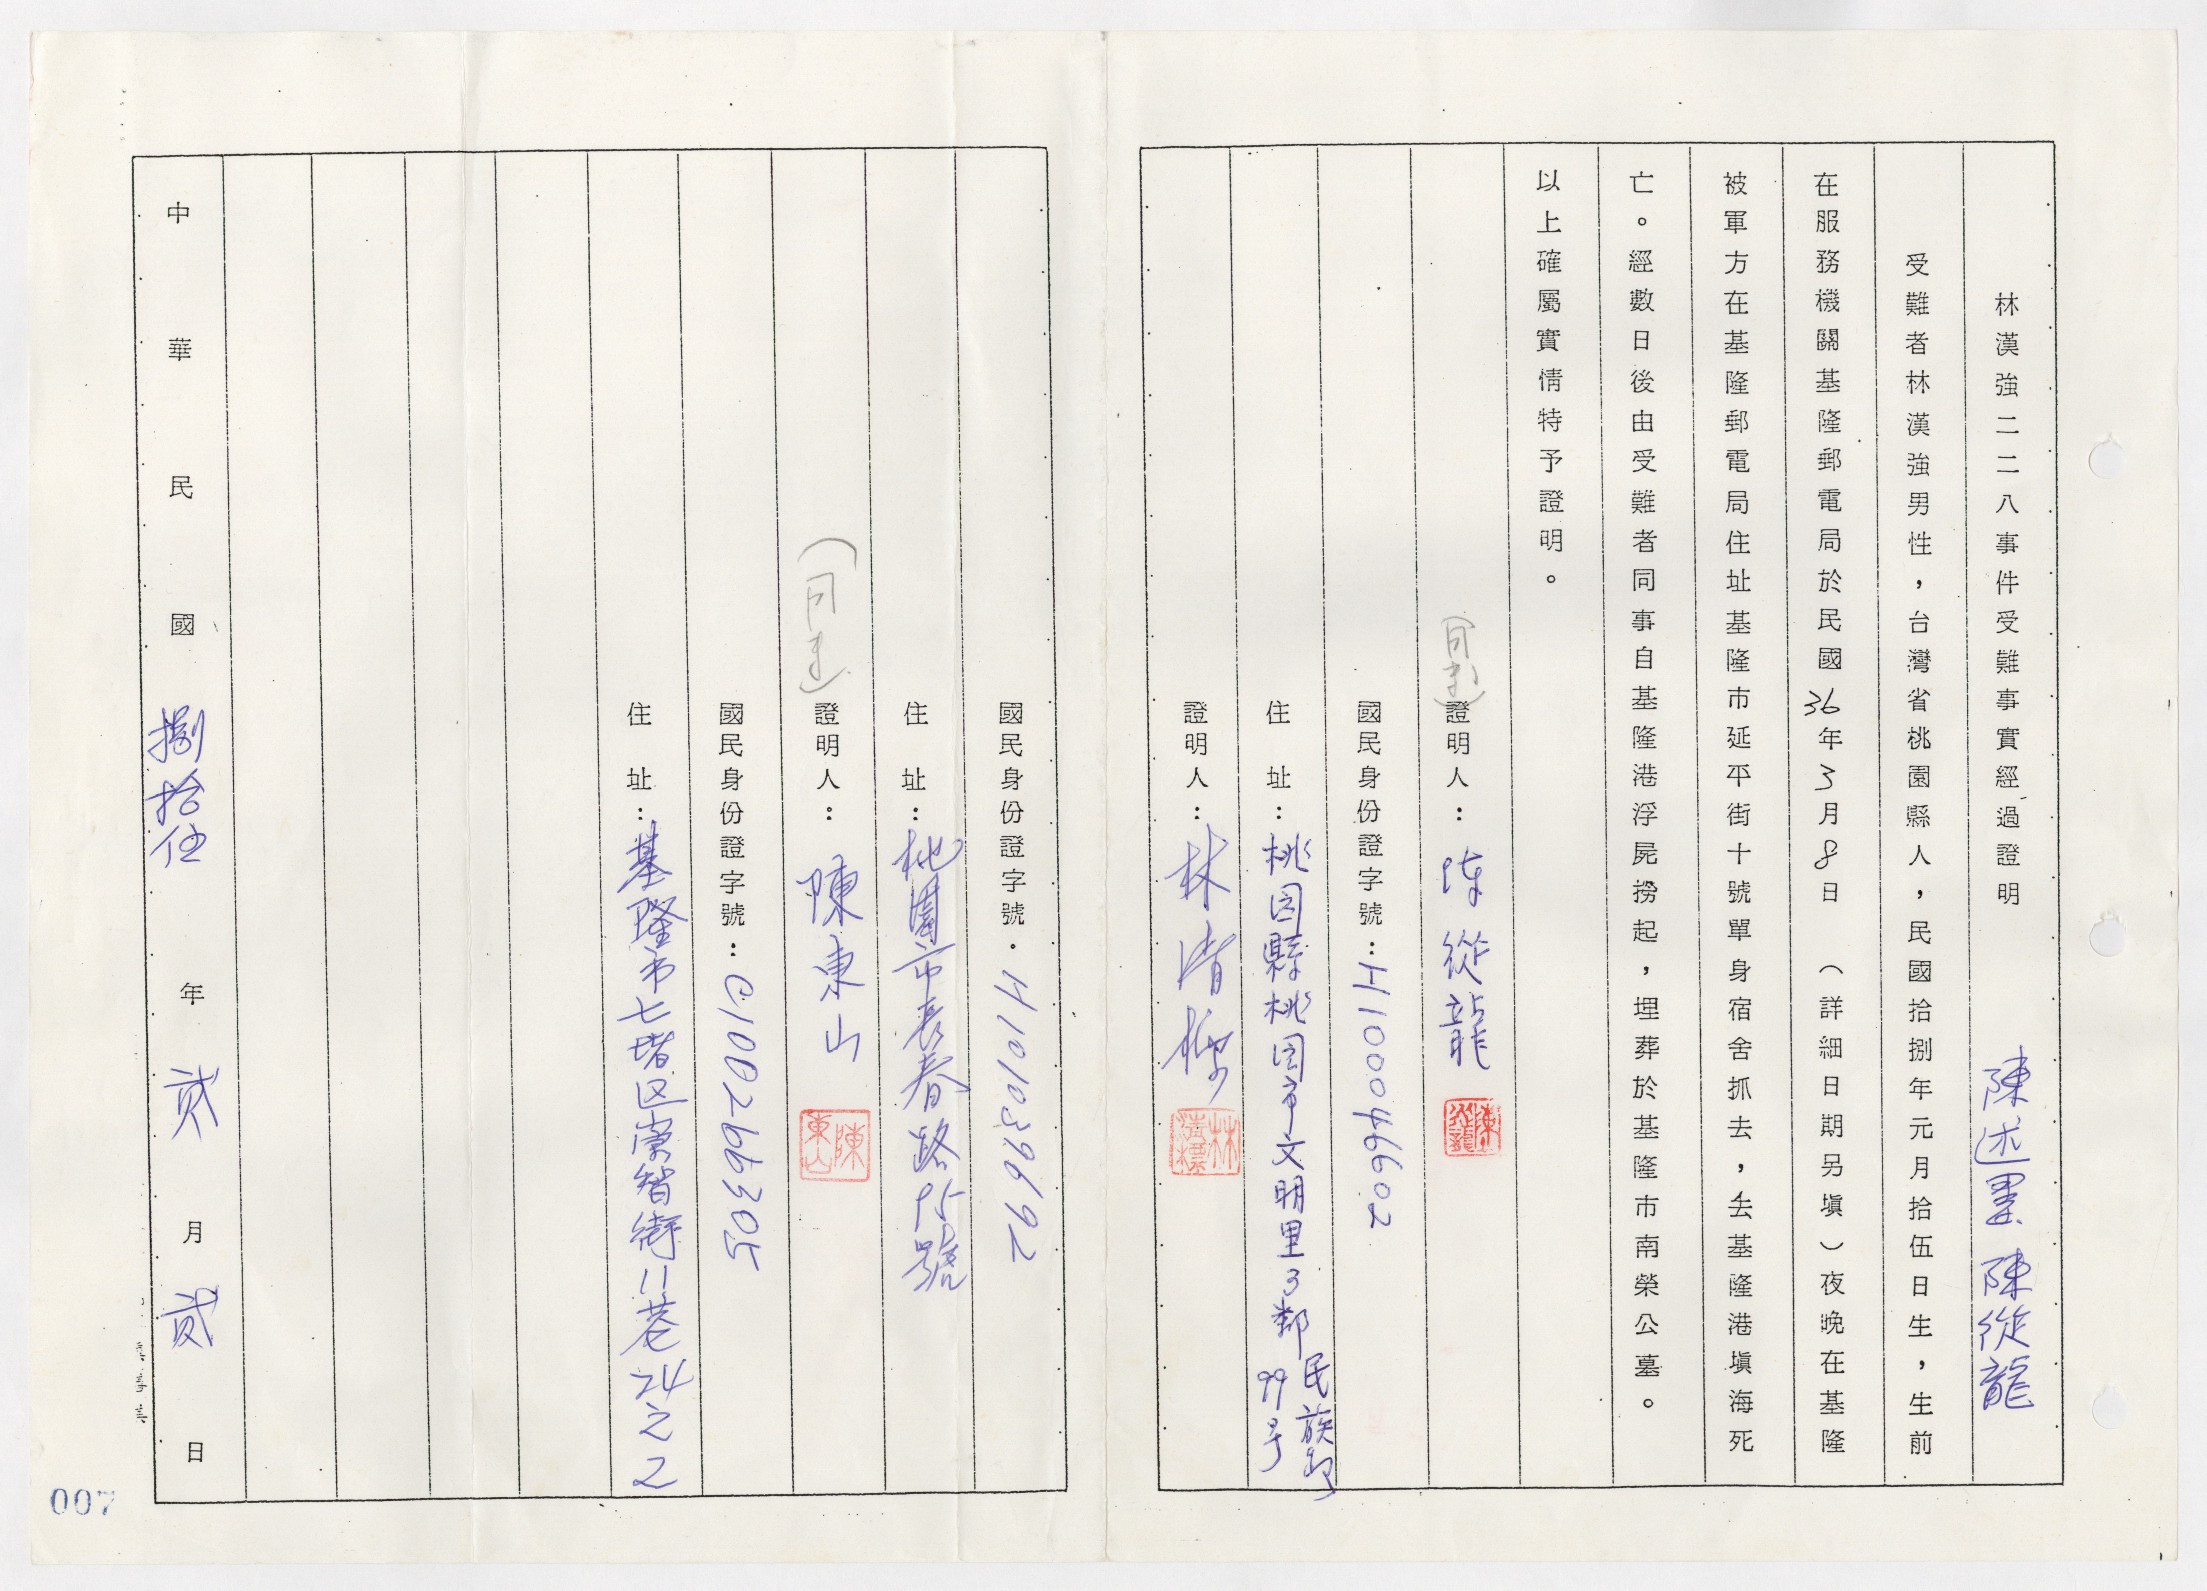 林漢強二二八事件受難事實經過證明 陳述
陳從龍
受難者林漢強男性，台灣省桃園縣人，民國拾捌年元月拾伍日生，生前
在服務機關基隆郵電局於民國36年3月8日（詳細日期另填）夜晚在基隆
被軍方在基隆郵電局住址基隆市延平街十號單身宿舍抓去，去基隆港填海死
亡。經數日後由受難者同事自基隆港浮屍撈起，埋葬於基隆市南榮公墓。
以上確屬實情特予證明。
證明人：陳從龍 陳從龍
國民身份證字號：H100046602
住址：桃园縣桃园市文明里3鄰民族路
99号
證明人：林清標 林清標
國民身份證字號：H101039692
住址：桃園市長春路15號
（同事）證明人：陳東山 陳東山
國民身份證字號：C100266305
住址：基隆市七堵区崇智街11巷24之2
中華民國捌拾伍年貳月貳日
007